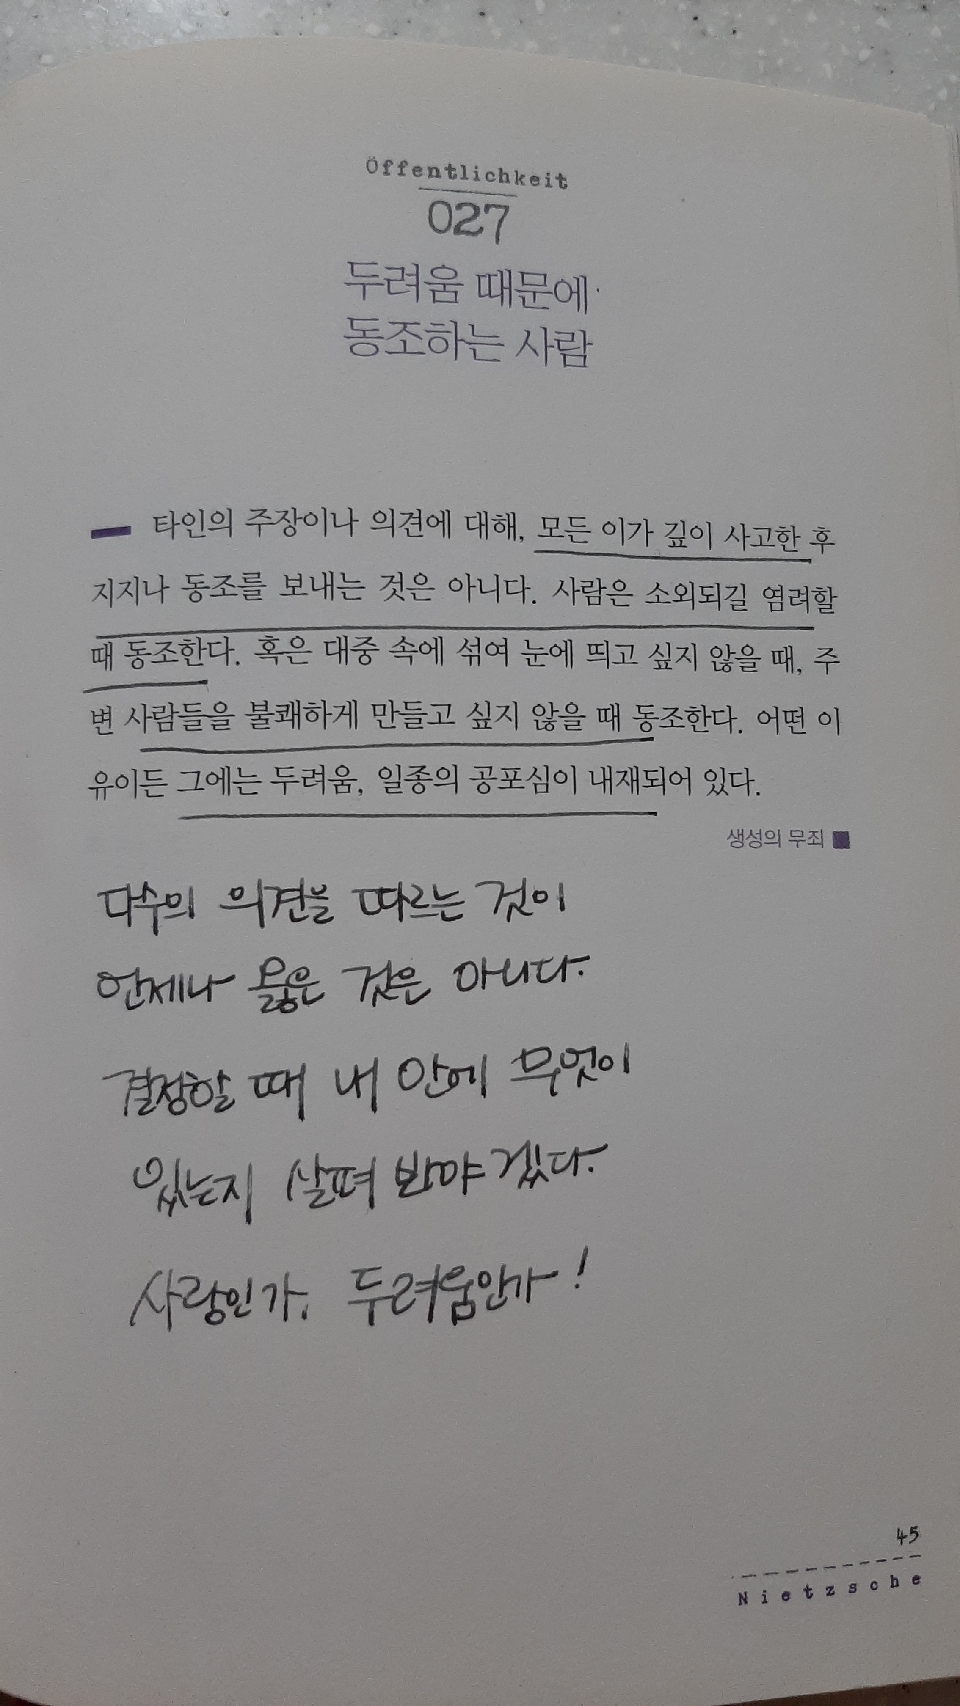 Öffentlichkeit
027
두려움 때문에
동조하는 사람
타인의 주장이나 의견에 대해, 모든 이가 깊이 사고한 후
지지나 동조를 보내는 것은 아니다. 사람은 소외되길 염려할
때 동조한다. 혹은 대중 속에 섞여 눈에 띄고 싶지 않을 때, 주
변 사람들을 불쾌하게 만들고 싶지 않을 때 동조한다. 어떤 이
유이든 그에는 두려움, 일종의 공포심이 내재되어 있다.
생성의 무죄
다수의 의견을 따르는 것이
언제나 옳은 것은 아니다.
결정할 때 내 안에 무엇이
있는지 살펴 봐야겠다.
사랑인가, 두려움인가!
45
Nietzsche